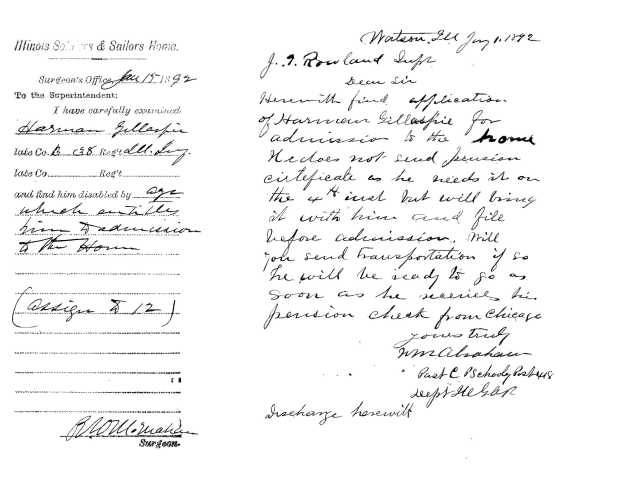 Illinois Soldiers & Sailors Home.
Surgeon's Office, Jan 15 1892
To the Superintendent:
I have carefully examined
Harman Gillaspie
late Co. B 138 Reg't Ill. Inf.
late Co. Reg't
and find him disabled by age
which entitles
him to admission
to the Home
(assign to 12)
Surgeon.
Watson, Ill Jany 1, 1892
J. Rowland Supt
Dear Sir
Herewith find application
of Harman Gillaspie for
admission to the home
He does not send pension
certificate as he needs it on
the 4th inst but will bring
it with him and file
before admission. Will
you send transportation if so
he will be ready to go as
soon as he receives his
pension check from Chicago
yours truly
Wm Abraham
Past C Post
Dept Ill GAR
Discharge herewith